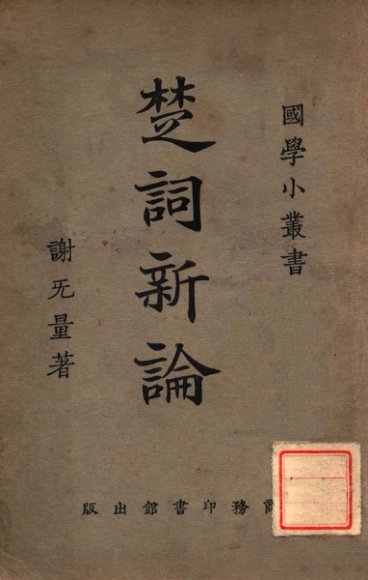 國學小叢書
楚詞新論
謝无量著
商務印書館出版